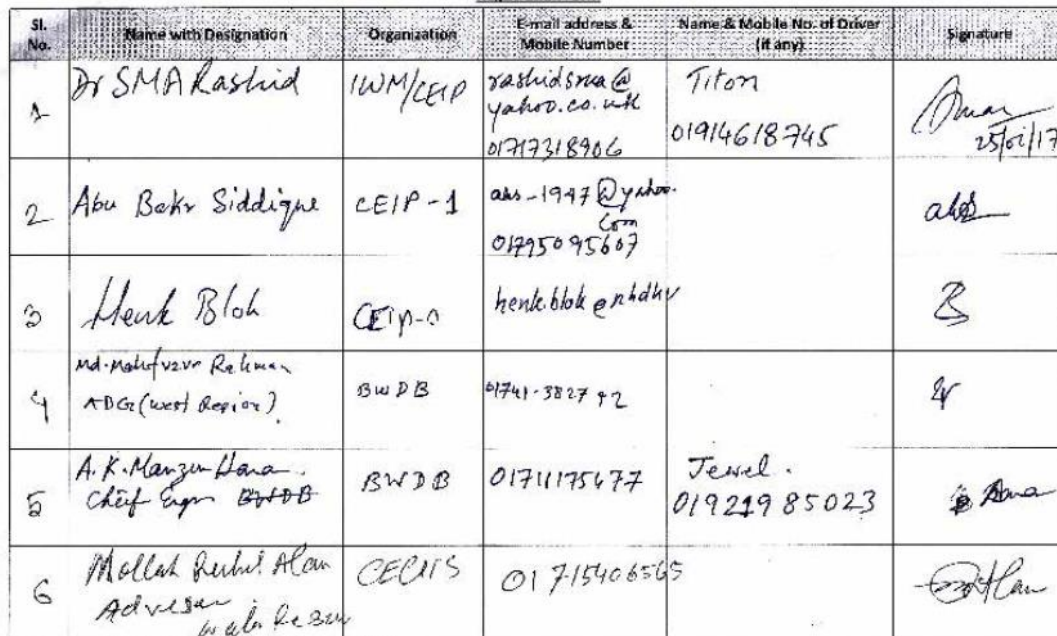 Sl. No. Name with Designation Organization E-mail address & Mobile Number Name & Mobile No. of Driver (if any) Signature
1 Dr SMA Rashid IWM/CEIP rashidsma@ Titon
yahoo.co.uk
01717318906 01914618745
25/01/17
2 Abu Bakr Siddique CEIP-1 abs-1947@yahoo.
com
01795095607
3 Henk Blok CEIP- henk.blok@rhdhv
4 Rahman
ADG (West Region) BWDB 01741-382792
5 A. K. Manzur BWDB 01711175477 Jewel.
Chief Engr BWDB 01921985023
6 Mollah Ruhul Alam CEGIS 01715406565
Adviser
Water